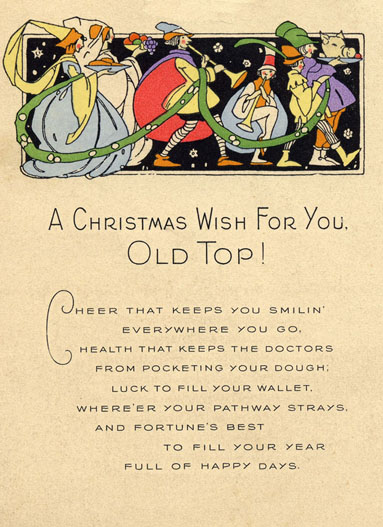 A CHRISTMAS WISH FOR YOU,
OLD TOP!
CHEER THAT KEEPS YOU SMILIN'
EVERYWHERE YOU GO,
HEALTH THAT KEEPS THE DOCTORS
FROM POCKETING YOUR DOUGH;
LUCK TO FILL YOUR WALLET,
WHERE'ER YOUR PATHWAY STRAYS,
AND FORTUNE'S BEST
TO FILL YOUR YEAR
FULL OF HAPPY DAYS.